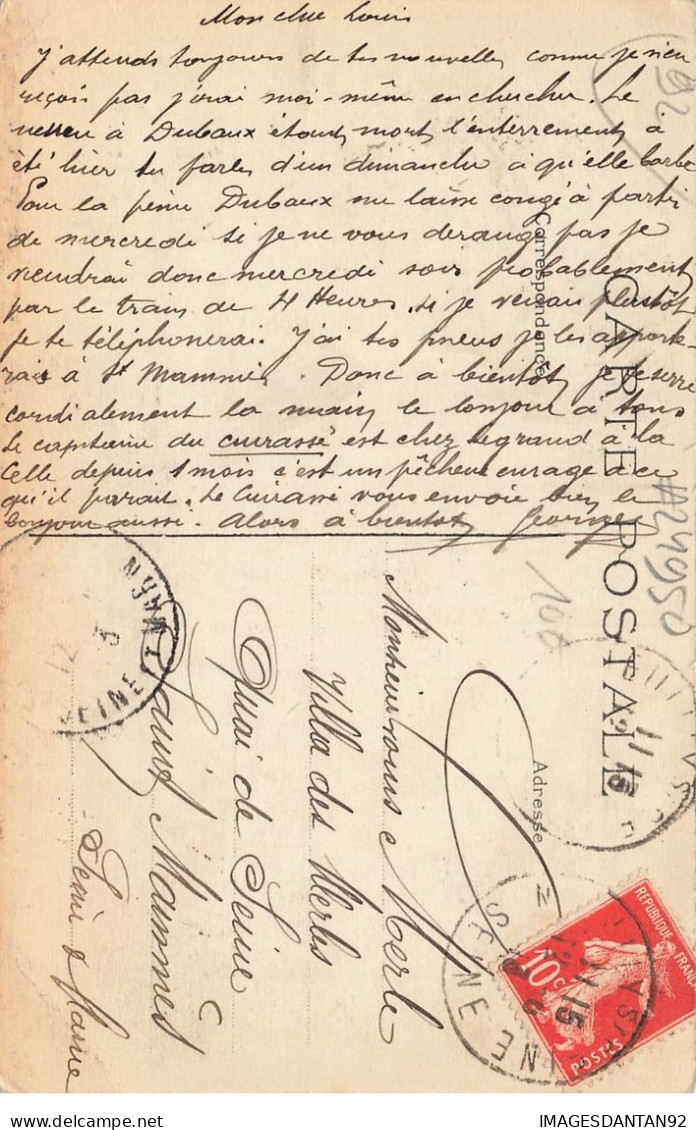 Mon cher Louis
J'attends toujours de tes nouvelles comme je n'en
reçois pas j'irai moi-même en chercher. Le
neveu à Dubaux étant mort l'enterrement à
été hier tu parles d'un dimanche à qu'elle barbe
Pour la peine Dubaux me laisse congé à partir
de mercredi si je ne vous dérange pas je
viendrai donc mercredi soir probablement
par le train de 4 Heures. si je venais plustôt
je te téléphonerai. J'ai tes pneus je les apporte-
rais à St Mammès. Donc à bientôt je te serre
cordialement la main le bonjour à tous
Le capitaine du cuirassé est chez Legrand à la
Celle depuis 1 mois c'est un pêcheur enragé à ce
qu'il parait. Le Cuirassé vous envoie bien le
bonjour aussi. Alors à bientôt Georges
CARTE POSTALE
Correspondance
Adresse
Monsieur Louis Merle
Villa des Merles
Quai de Seine
à Saint Mammès
Seine & Marne
92
#24950
100
REPUBLIQUE FRANÇAISE
10c
POSTES
SEINE
11 15
IMAGESDANTAN92